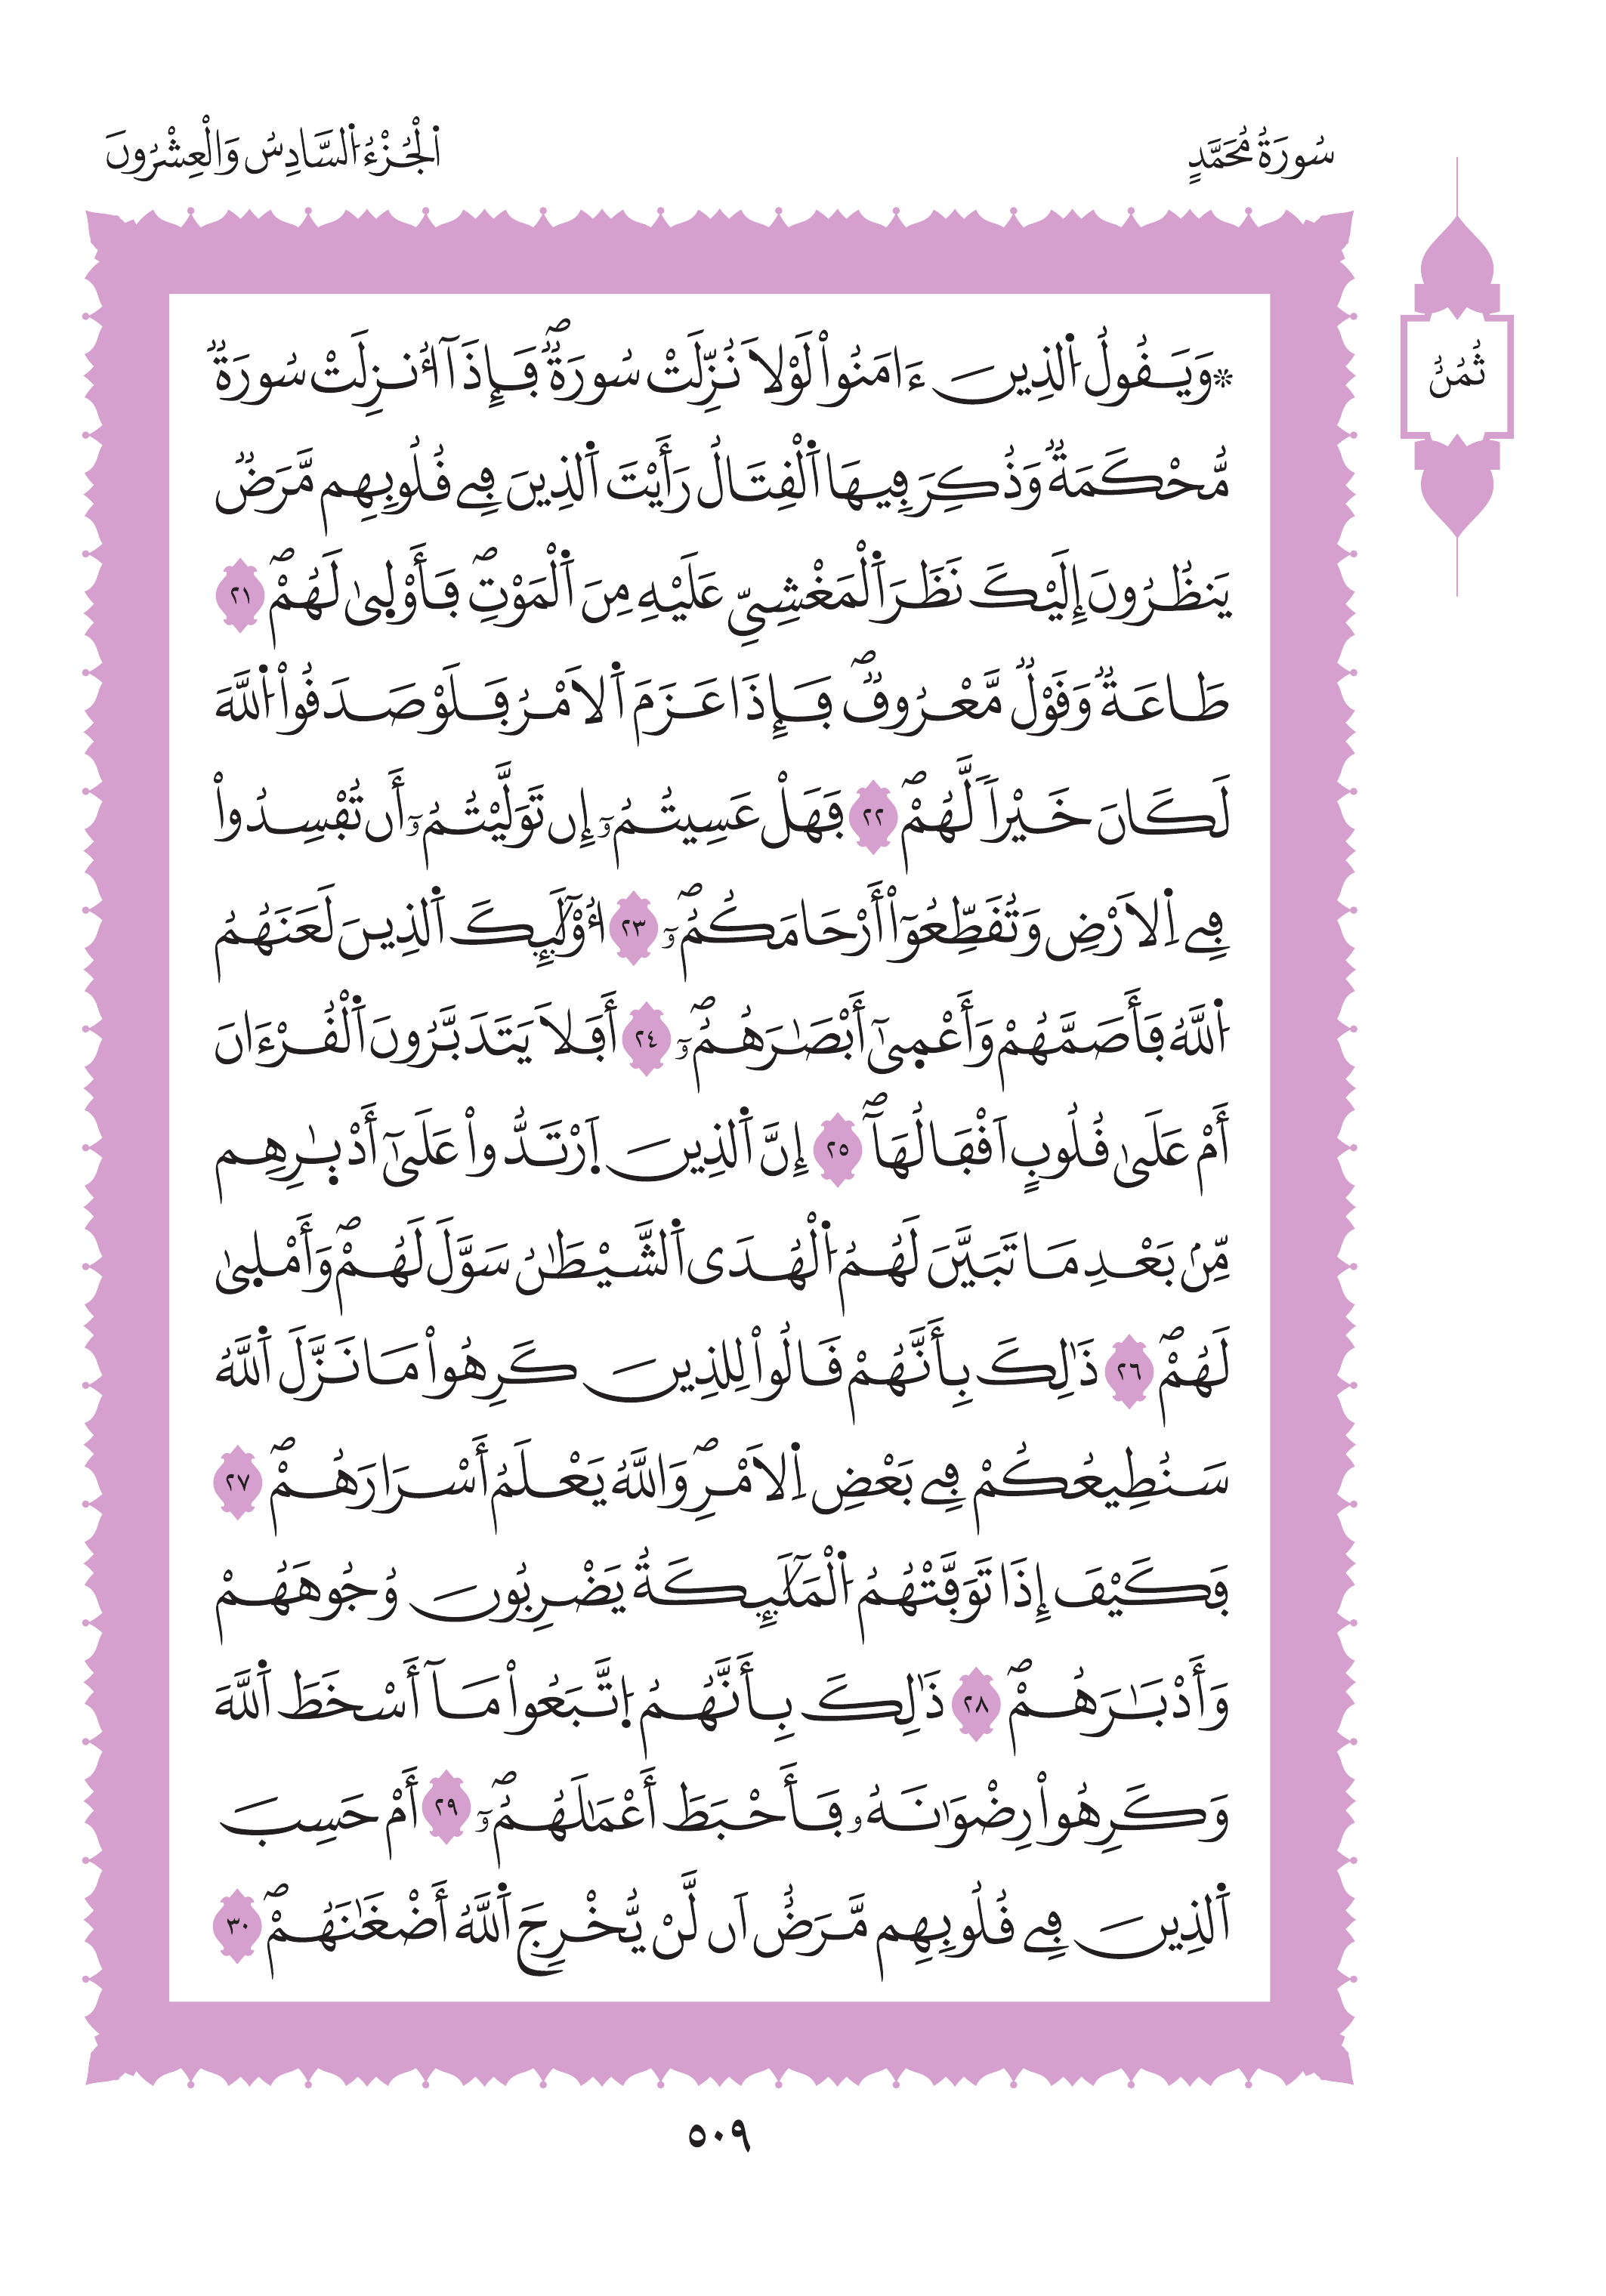 سُورَةُ مُحَمَّدٍ
اَلْجُزْءُ اُلسَّادِسُ وَالْعِشْرُونَ
ثُمُنٌ
۞وَيَڧُولُ اُلذِينَ ءَامَنُواْ لَوْلَا نُزِّلَتْ سُورَةٞۖ بَإِذَآ أُنزِلَتْ سُورَةٞ
مُّحْكَمَةٞ وَذُكِرَ فِيهَا اَ۬لْقِتَالُ رَأَيْتَ اَ۬لذِينَ فِے قُلُوبِهِم مَّرَضٞ
يَنظُرُونَ إِلَيْكَ نَظَرَ اَ۬لْمَغْشِيِّ عَلَيْهِ مِنَ اَ۬لْمَوْتِۖ فَأَوْل۪ىٰ لَهُمْۖ ٢١
طَاعَةٞ وَقَوْلٞ مَّعْرُوفٞۖ فَإِذَا عَزَمَ اَ۬لَامْرُ فَلَوْ صَدَقُواْ اُ۬للَّهَ
لَكَانَ خَيْراٗ لَّهُمْۖ ٢٢ فَهَلْ عَسِيتُمُۥٓ إِن تَوَلَّيْتُمُۥٓ أَن تُفْسِدُواْ
فِے اِ۬لَارْضِ وَتُقَطِّعُوٓاْ أَرْحَامَكُمُۥٓۖ ٢٣ أُوْلَٰٓئِكَ اَ۬لذِينَ لَعَنَهُمُ
اُ۬للَّهُ فَأَصَمَّهُمْ وَأَعْم۪ىٰٓ أَبْصَٰرَهُمُۥٓۖ ٢٤ أَفَلَا يَتَدَبَّرُونَ اَ۬لْقُرْءَانَ
أَمْ عَلَىٰ قُلُوبٍ اَقْفَالُهَآۖ ٢٥ إِنَّ اَ۬لذِينَ اَ۪رْتَدُّواْ عَلَىٰٓ أَدْبٰ۪رِهِم
مِّنۢ بَعْدِ مَا تَبَيَّنَ لَهُمُ اُ۬لْهُدَى اَ۬لشَّيْطَٰنُ سَوَّلَ لَهُمْۖ وَأَمْل۪ىٰ
لَهُمْۖ ٢٦ ذَٰلِكَ بِأَنَّهُمْ قَالُواْ لِلذِينَ كَرِهُواْ مَا نَزَّلَ اَ۬للَّهُ
سَنُطِيعُكُمْ فِے بَعْضِ اِ۬لَامْرِۖ وَاللَّهُ يَعْلَمُ أَسْرَارَهُمْۖ ٢٧
فَكَيْفَ إِذَا تَوَفَّتْهُمُ اُ۬لْمَلَٰٓئِكَةُ يَضْرِبُونَ وُجُوهَهُمْ
وَأَدْبَٰرَهُمْۖ ٢٨ ذَٰلِكَ بِأَنَّهُمُ اُ۪تَّبَعُواْ مَآ أَسْخَطَ اَ۬للَّهَ
وَكَرِهُواْ رِضْوَٰنَهُۥ فَأَحْبَطَ أَعْمَٰلَهُمُۥٓۖ ٢٩ أَمْ حَسِبَ
اَ۬لذِينَ فِے قُلُوبِهِم مَّرَضٌ اَن لَّنْ يُّخْرِجَ اَ۬للَّهُ أَضْغَٰنَهُمْۖ ٣٠
٥٠٩